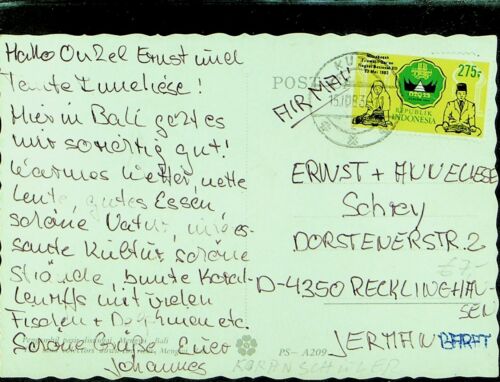 Hallo Onkel Ernst und
Tante Anneliese!
Hier in Bali geht es
mir so richtig gut!
Warmes Wetter, nette
Leute, gutes Essen,
schöne Natur, interes-
sante Kultur, schöne
Strände, bunte Koral-
lenriffs mit vielen
Fischen + Delphinen etc.
Schöne Grüße Euer
Johannes
POST
AIRMAIL
275r
REPUBLIK
INDONESIA
ERNST + ANNELIESE
Schrey
DORSTENERSTR. 2
D-4350 RECKLINGHAU-
SEN
JERMAN BARAT
PS- A209
KORANSCHÜLER